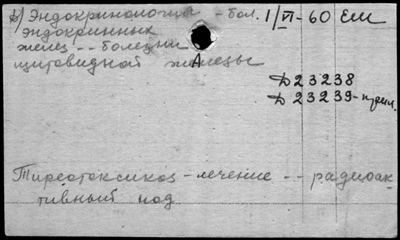 в) Эндокринология - бол. 1/VI - 60 Еш
эндокринных
желез -- болезни
щитовидной железы
А
Д 23238
Д 23239-прил.
Тиреотоксикоз - лечение -- радиоак-
тивный йод